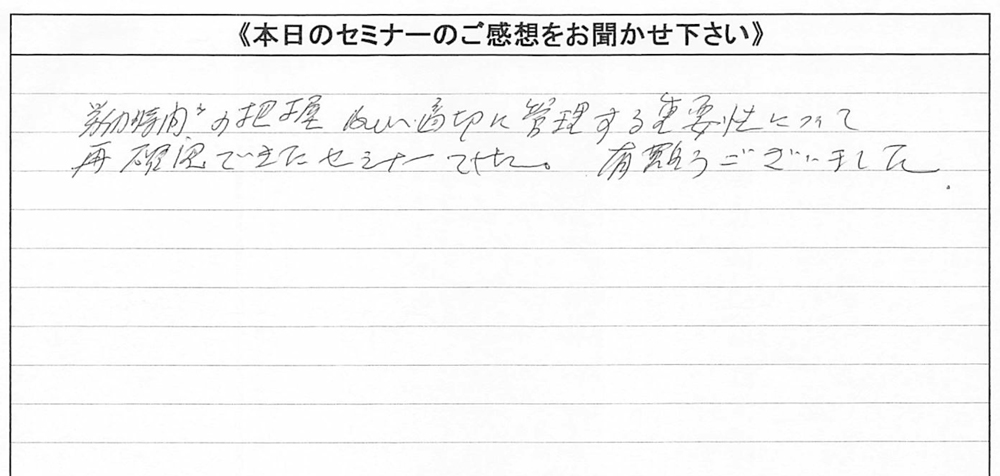 《本日のセミナーのご感想をお聞かせ下さい》
労働時間の把握 適切に管理する重要性について
再確認できたセミナーでした。 有難うございました.